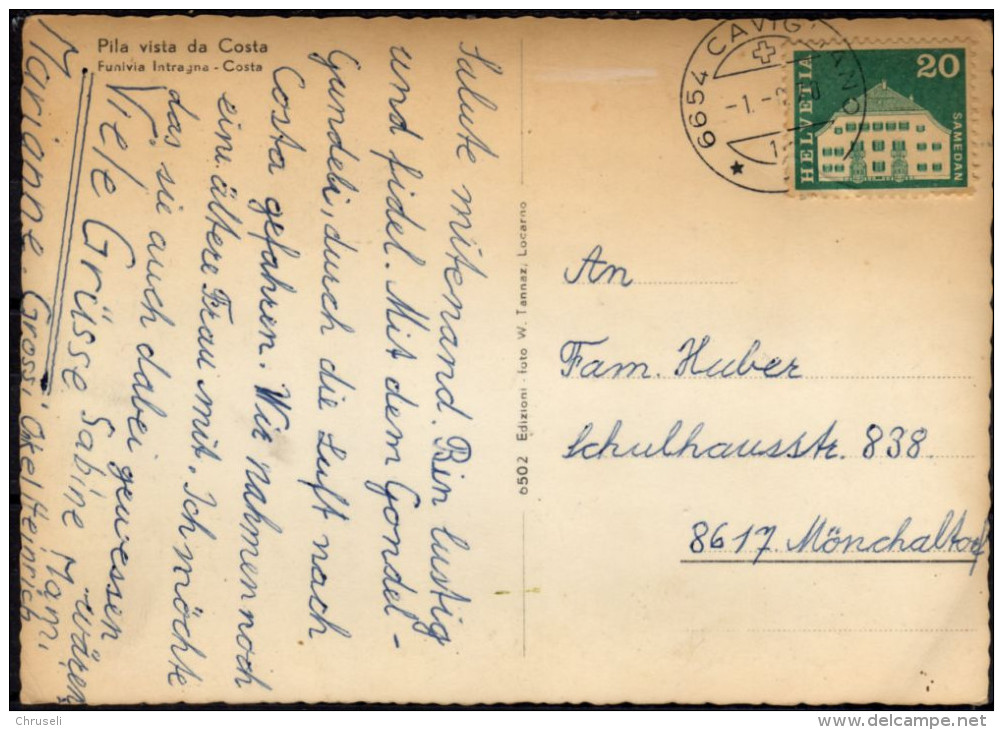 Pila vista da Costa
Funivia Intragna - Costa
Salute mitenand. Bin lustig
und fidel. Mit dem Gondel-
Gundeli, durch die Luft nach
Costa gefahren. Wir nahmen noch
eini ältere Frau mit. Ich möchte
das sie auch dabei gewessen
wären
Viele Grüsse Sabine Mami
Marianne. Grossi Okel Heinrich
6502 Edizioni - foto W. Tannaz, Locarno
6654 CAVIGLIANO
-1.-
HELVETIA
20
SAMEDAN
An
Fam. Huber
Schulhausstr. 838.
8617 Mönchaltorf
Chruseli
delcampe.net